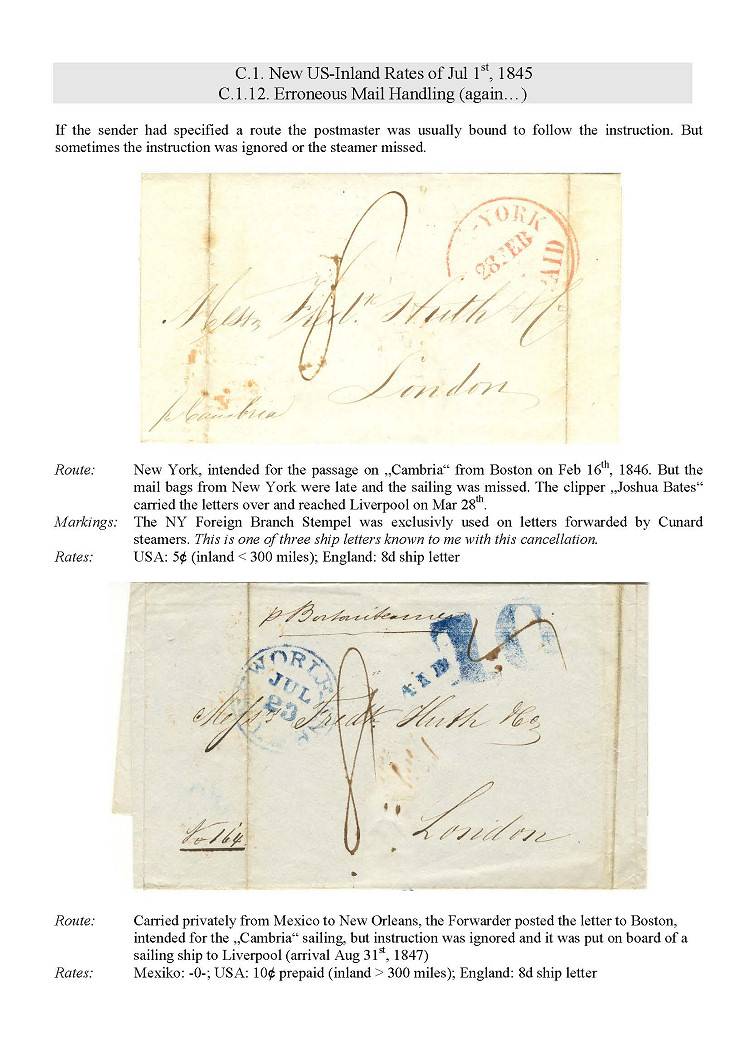 C.1. New US-Inland Rates of Jul 1st, 1845
C.1.12. Erroneous Mail Handling (again…)
If the sender had specified a route the postmaster was usually bound to follow the instruction. But
sometimes the instruction was ignored or the steamer missed.
-YORK
28 FEB
AID
8
Messrs Fredk. Huth & Co
London
p Cambria
Route: New York, intended for the passage on „Cambria“ from Boston on Feb 16th, 1846. But the
mail bags from New York were late and the sailing was missed. The clipper „Joshua Bates“
carried the letters over and reached Liverpool on Mar 28th.
Markings: The NY Foreign Branch Stempel was exclusivly used on letters forwarded by Cunard
steamers. This is one of three ship letters known to me with this cancellation.
Rates: USA: 5¢ (inland < 300 miles); England: 8d ship letter
p Boston steamer
10
JUL
23
8
Messrs Fredk Huth & Co
No 164
London
Route: Carried privately from Mexico to New Orleans, the Forwarder posted the letter to Boston,
intended for the „Cambria“ sailing, but instruction was ignored and it was put on board of a
sailing ship to Liverpool (arrival Aug 31st, 1847)
Rates: Mexiko: -0-; USA: 10¢ prepaid (inland > 300 miles); England: 8d ship letter